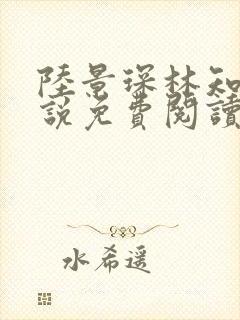 陸景琛林知
說免費閱讀
水希遥